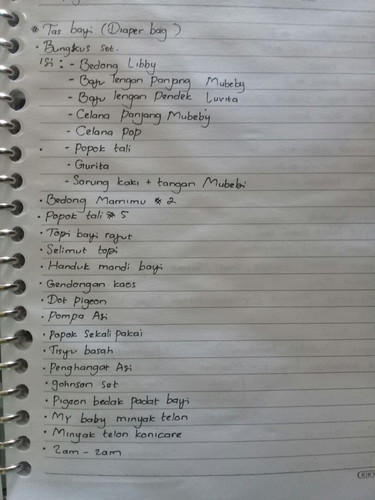 * Tas bayi (Diaper bag)
• Bungkus set.
isi : - Bedong Libby
- Baju lengan panjang Mubeby
- Baju lengan pendek Luvita
- Celana panjang Mubeby
- Celana pop
- Popok tali
- Gurita
- Sarung kaki + tangan Mubebi
• Bedong Mamimu * 2
• Popok tali * 5
• Topi bayi rajut
• Selimut topi
• Handuk mandi bayi
• Gendongan kaos
• Dot pigeon
• Pompa Asi
• Popok sekali pakai
• Tisyu basah
• Penghangat Asi
• Johnson set
• Pigeon bedak padat bayi
• My baby minyak telon
• Minyak telon konicare
• Zam - zam